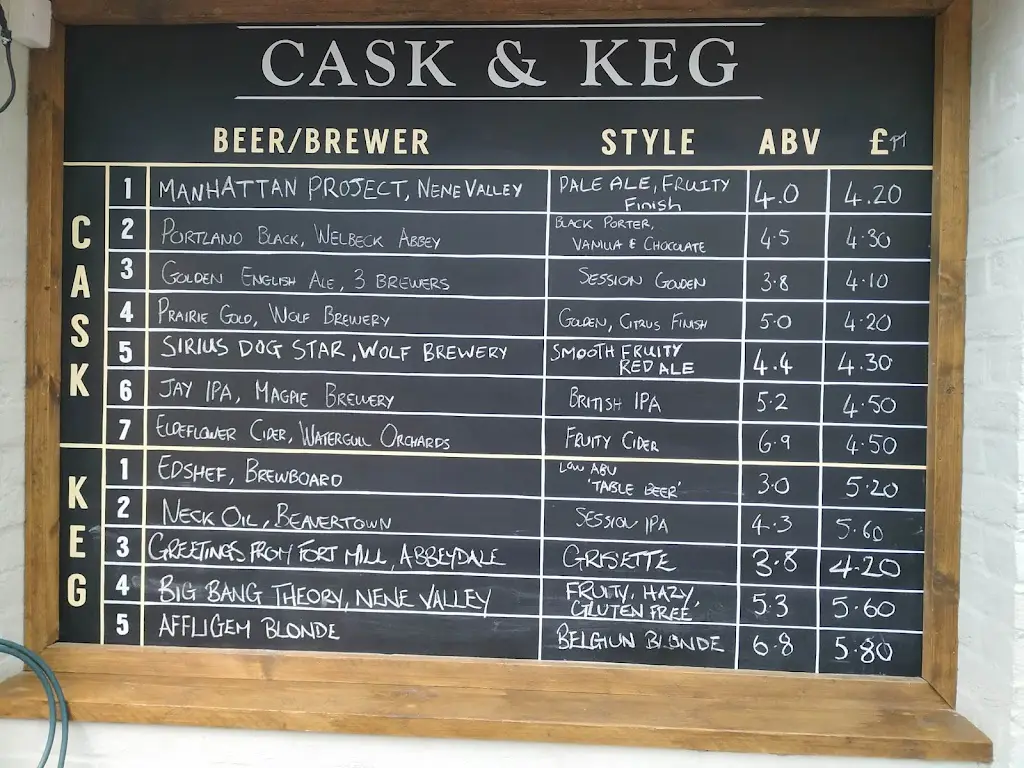 CASK & KEG
BEER/BREWER STYLE ABV £PT
CASK
1 MANHATTAN PROJECT, NENE VALLEY PALE ALE, FRUITY Finish 4.0 4.20
2 PORTLAND BLACK, WELBECK ABBEY BLACK PORTER, VANILLA & CHOCOLATE 4.5 4.30
3 GOLDEN ENGLISH ALE, 3 BREWERS SESSION GOLDEN 3.8 4.10
4 PRAIRIE GOLD, WOLF BREWERY GOLDEN, CITRUS FINISH 5.0 4.20
5 SIRIUS DOG STAR, WOLF BREWERY SMOOTH FRUITY RED ALE 4.4 4.30
6 JAY IPA, MAGPIE BREWERY BRITISH IPA 5.2 4.50
7 ELDEFLOWER CIDER, WATERGULL ORCHARDS FRUITY CIDER 6.9 4.50
KEG
1 EDSHEF, BREWBOARD LOW ABV 'TABLE BEER' 3.0 5.20
2 NECK OIL, BEAVERTOWN SESSION IPA 4.3 5.60
3 GREETINGS FROM FORT MILL, ABBEYDALE GRISETTE 3.8 4.20
4 BIG BANG THEORY, NENE VALLEY FRUITY, HAZY, GLUTEN FREE 5.3 5.60
5 AFFLIGEM BLONDE BELGIUN BLONDE 6.8 5.80